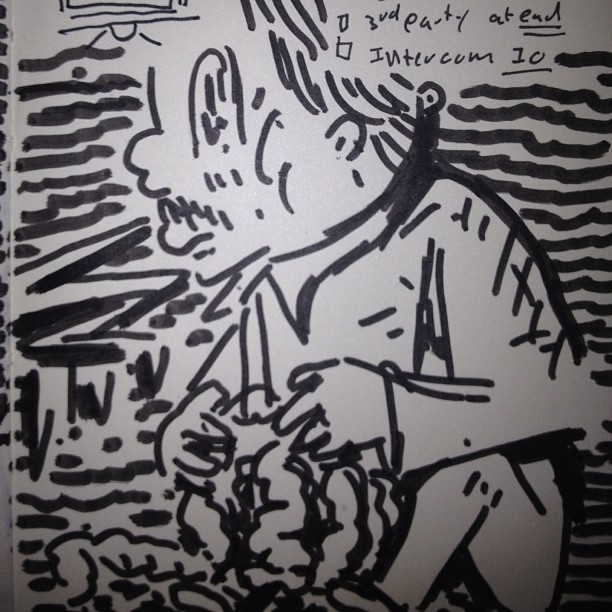 3rd party at end
Intercom Io